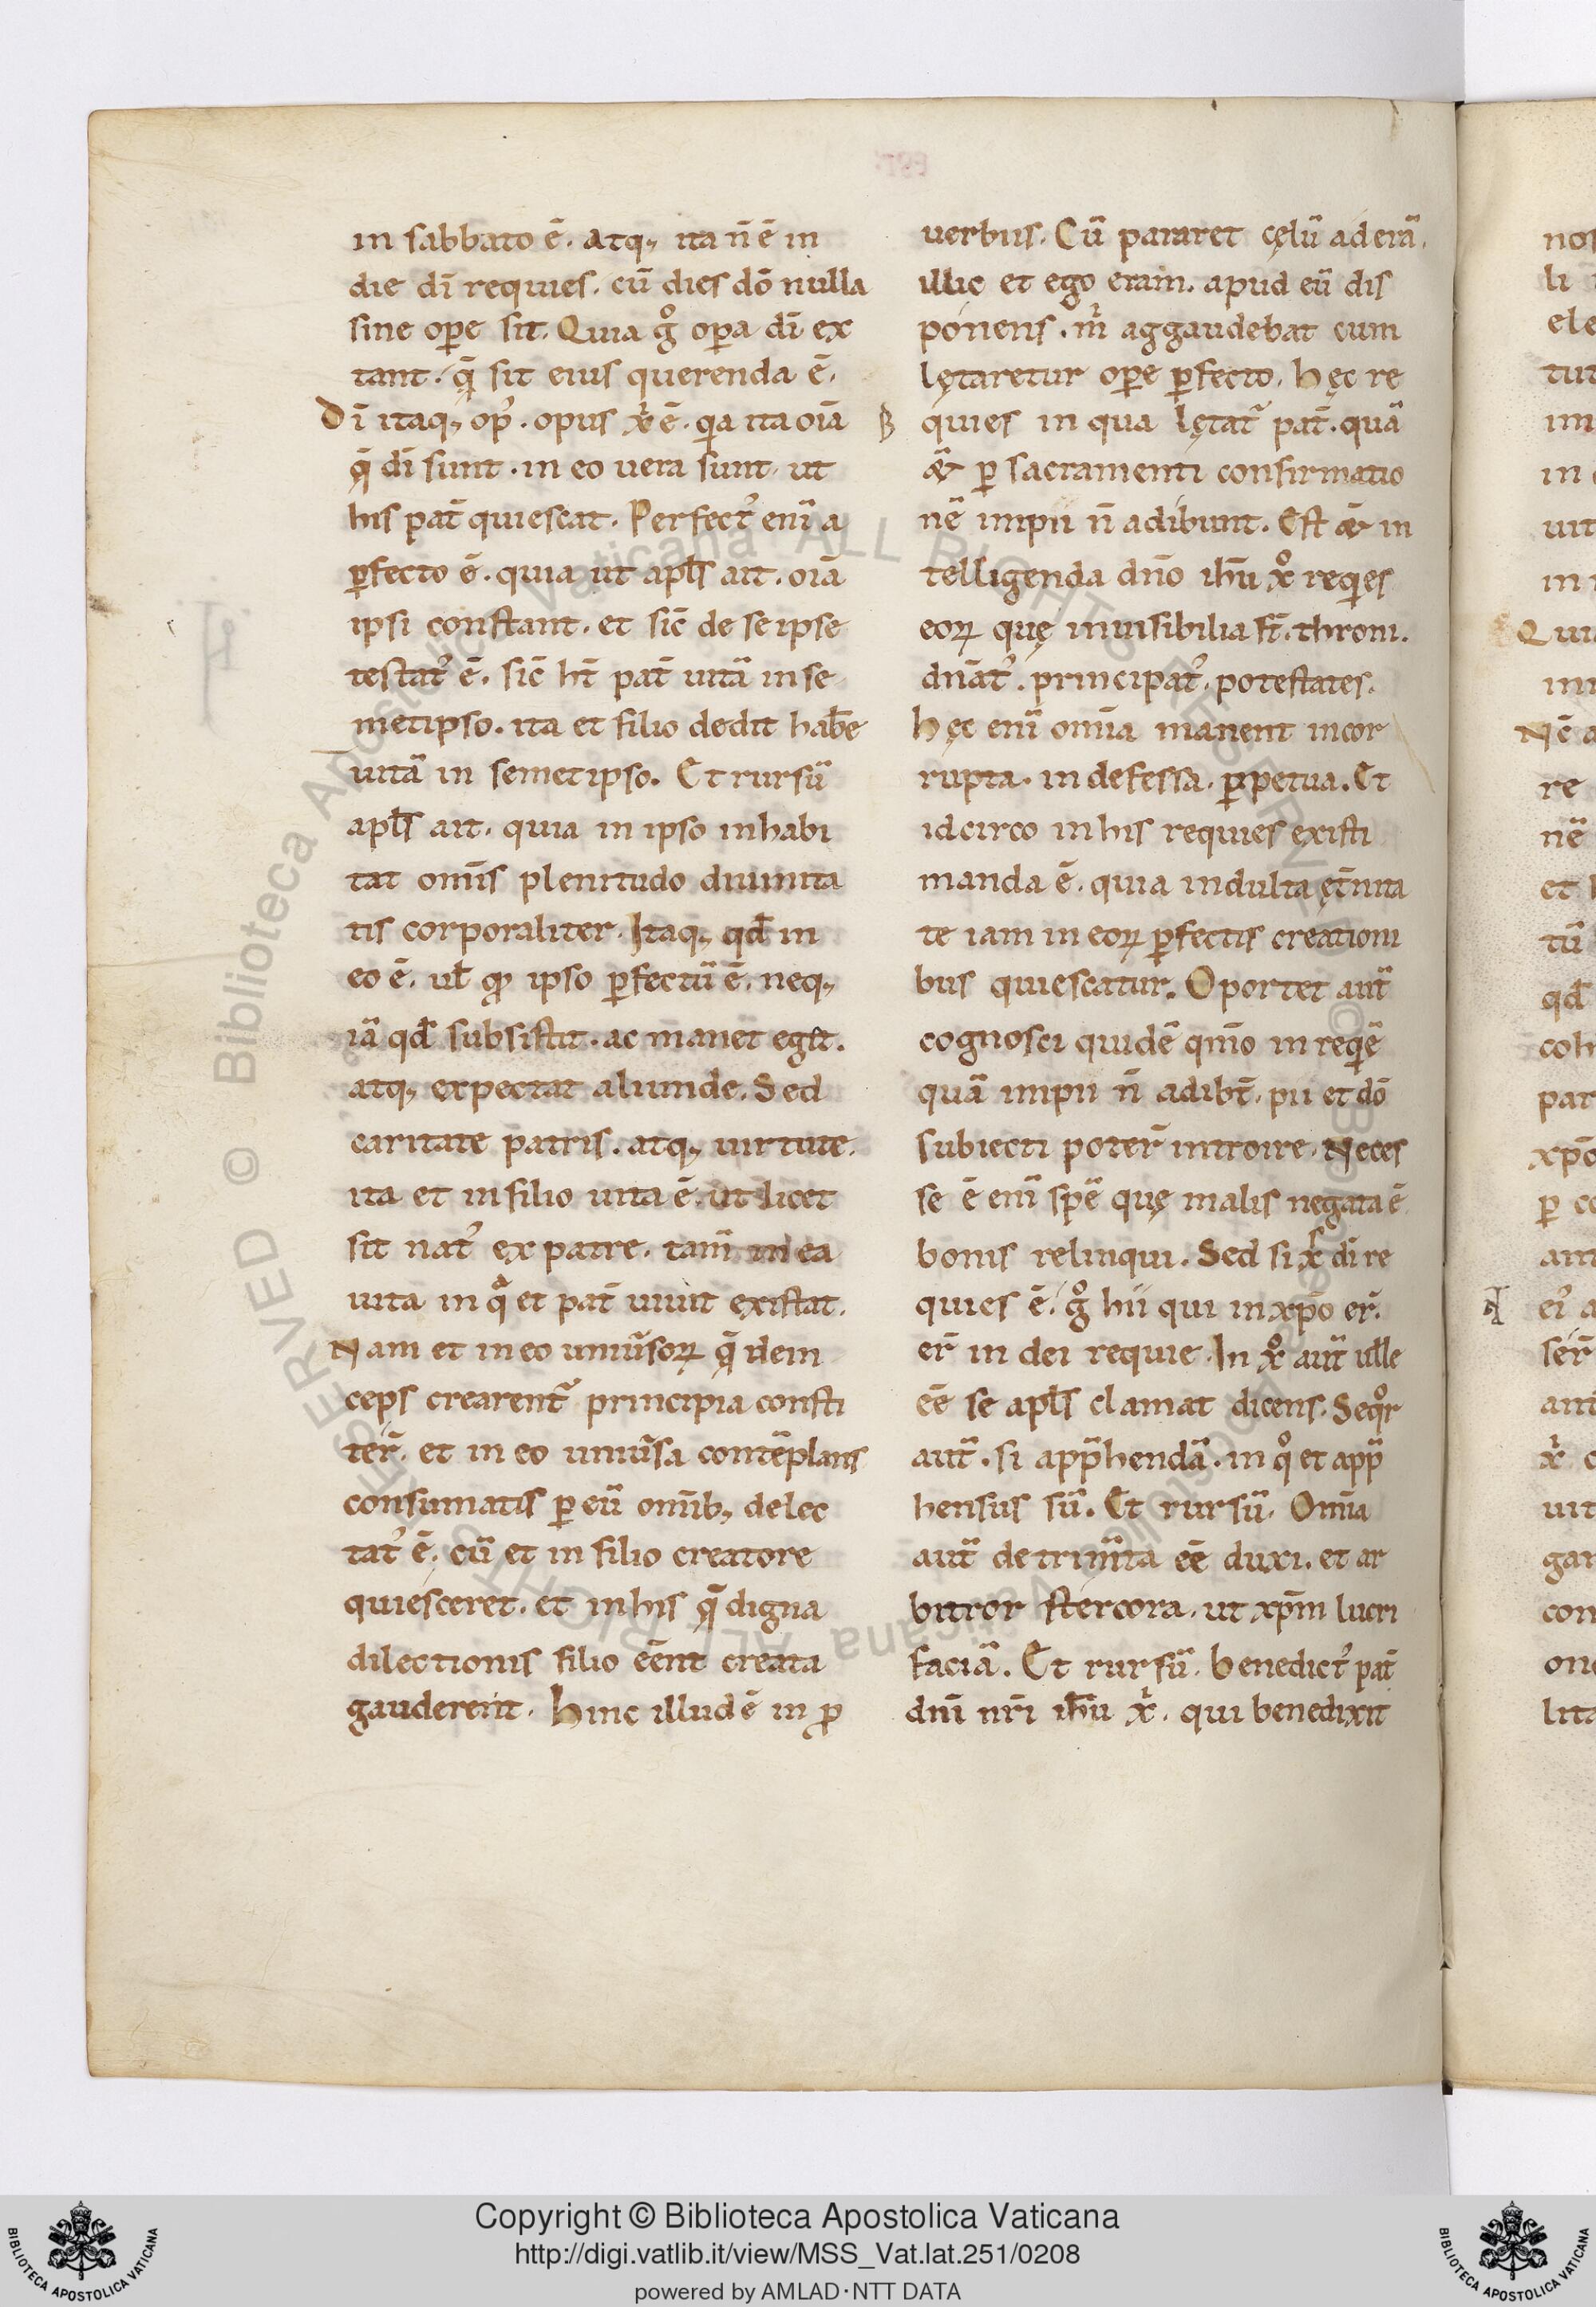 in sabbato ē. Atq; ita n̄ ē in
die dī requies. cū dies dō nulla
sine op̄e sit. Quia gͦ op̄a dī ex
tant. q̄ sit eius querenda ē.
Dī itaq; op᾽. opus xͥ ē. qͥa ita oīa
q̄ dī sunt. in eo uera sunt. ut
his pat̄ quiescat. Perfect᾽ enī a
p̄fecto ē. quia ut apl̄s ait. oīa
ipsi constant. et sic̄ de se ipse
testat᾽ ē. sic̄ ht̄ pat̄ uitā in se
metipso. ita et filio dedit hab̄e
uitā in semetipso. Et rursū
apl̄s ait. quia in ipso inhabi
tat om̄is plenitudo diuinita
tis corporaliter. Itaq; qd̄ in
eo ē. ul̄ ꝓ ipso p̄fectū ē. neq;
iā qd̄ subsistit. ac manet eget.
atq; expectat aliunde. Sed
caritate patris. atq; uirtute.
ita et in filio uita ē. ut licet
sit nat᾽ ex patre. tam̄ in ea
uita in qͣ et pat̄ uiuit existat.
Nam et in eo uniūsoꝝ q̄ dein
ceps crearent᾽ principia consti
ter̄. et in eo uniūsa contēplans
consumatis p̄ eū om̄ib; delec
tat᾽ ē. cū et in filio creatore
quiesceret. et in his q̄ digna
dilectionis filio eēnt creata
gauderent. Hinc illud ē in ꝓ
uerbiis. Cū pararet cęlū aderā.
illic et ego eram. apud eū dis
ponens. mͥ aggaudebat cum
lętaretur op̄e p̄fecto. Hęc re
quies in qua lętat᾽ pat̄. quā
&̄ p̄ sacramenti confirmatio
nē impii n̄ adibunt. Est &̄ in
telligenda dn̄o ih̄u xͦ reqͥes
eoꝝ quę inuisibilia st̄. throni.
dn̄at᾽. principat᾽. potestates.
Hęc enī om̄ia manent incor
rupta. indefessa. p̄petua. Et
idcirco in his requies existi
manda ē. quia indulta ęt̄nita
te iam in eoꝝ p̄fectis creationi
bus quiescatur. Oportet aut̄
cognosci quidē qm̄o in reqͥē
quā impii n̄ adibt̄. pii et dō
subiecti poter̄ introire. Neces
se ē enī spē quę malis negata ē
bonis relinqui. Sed si xͨ dī re
quies ē. gͦ hii qui in xp̄o er̄.
er̄ in dei requie. In xͦ aut̄ uelle
eē se apl̄s clamat dicens. Seqͦr
aut̄. si app̄hendā. in qͦ et app̄
hensus sū. Et rursū. Om̄ia
aut̄ detrim̄ta eē duxi. et ar
bitror stercora. ut xp̄m lucri
faciā. Et rursū. benedict᾽ pat̄
dn̄i nr̄i ih̄u xͥ. qui benedixit
Copyright © Biblioteca Apostolica Vaticana
http://digi.vatlib.it/view/MSS_Vat.lat.251/0208
powered by AMLAD·NTT DATA